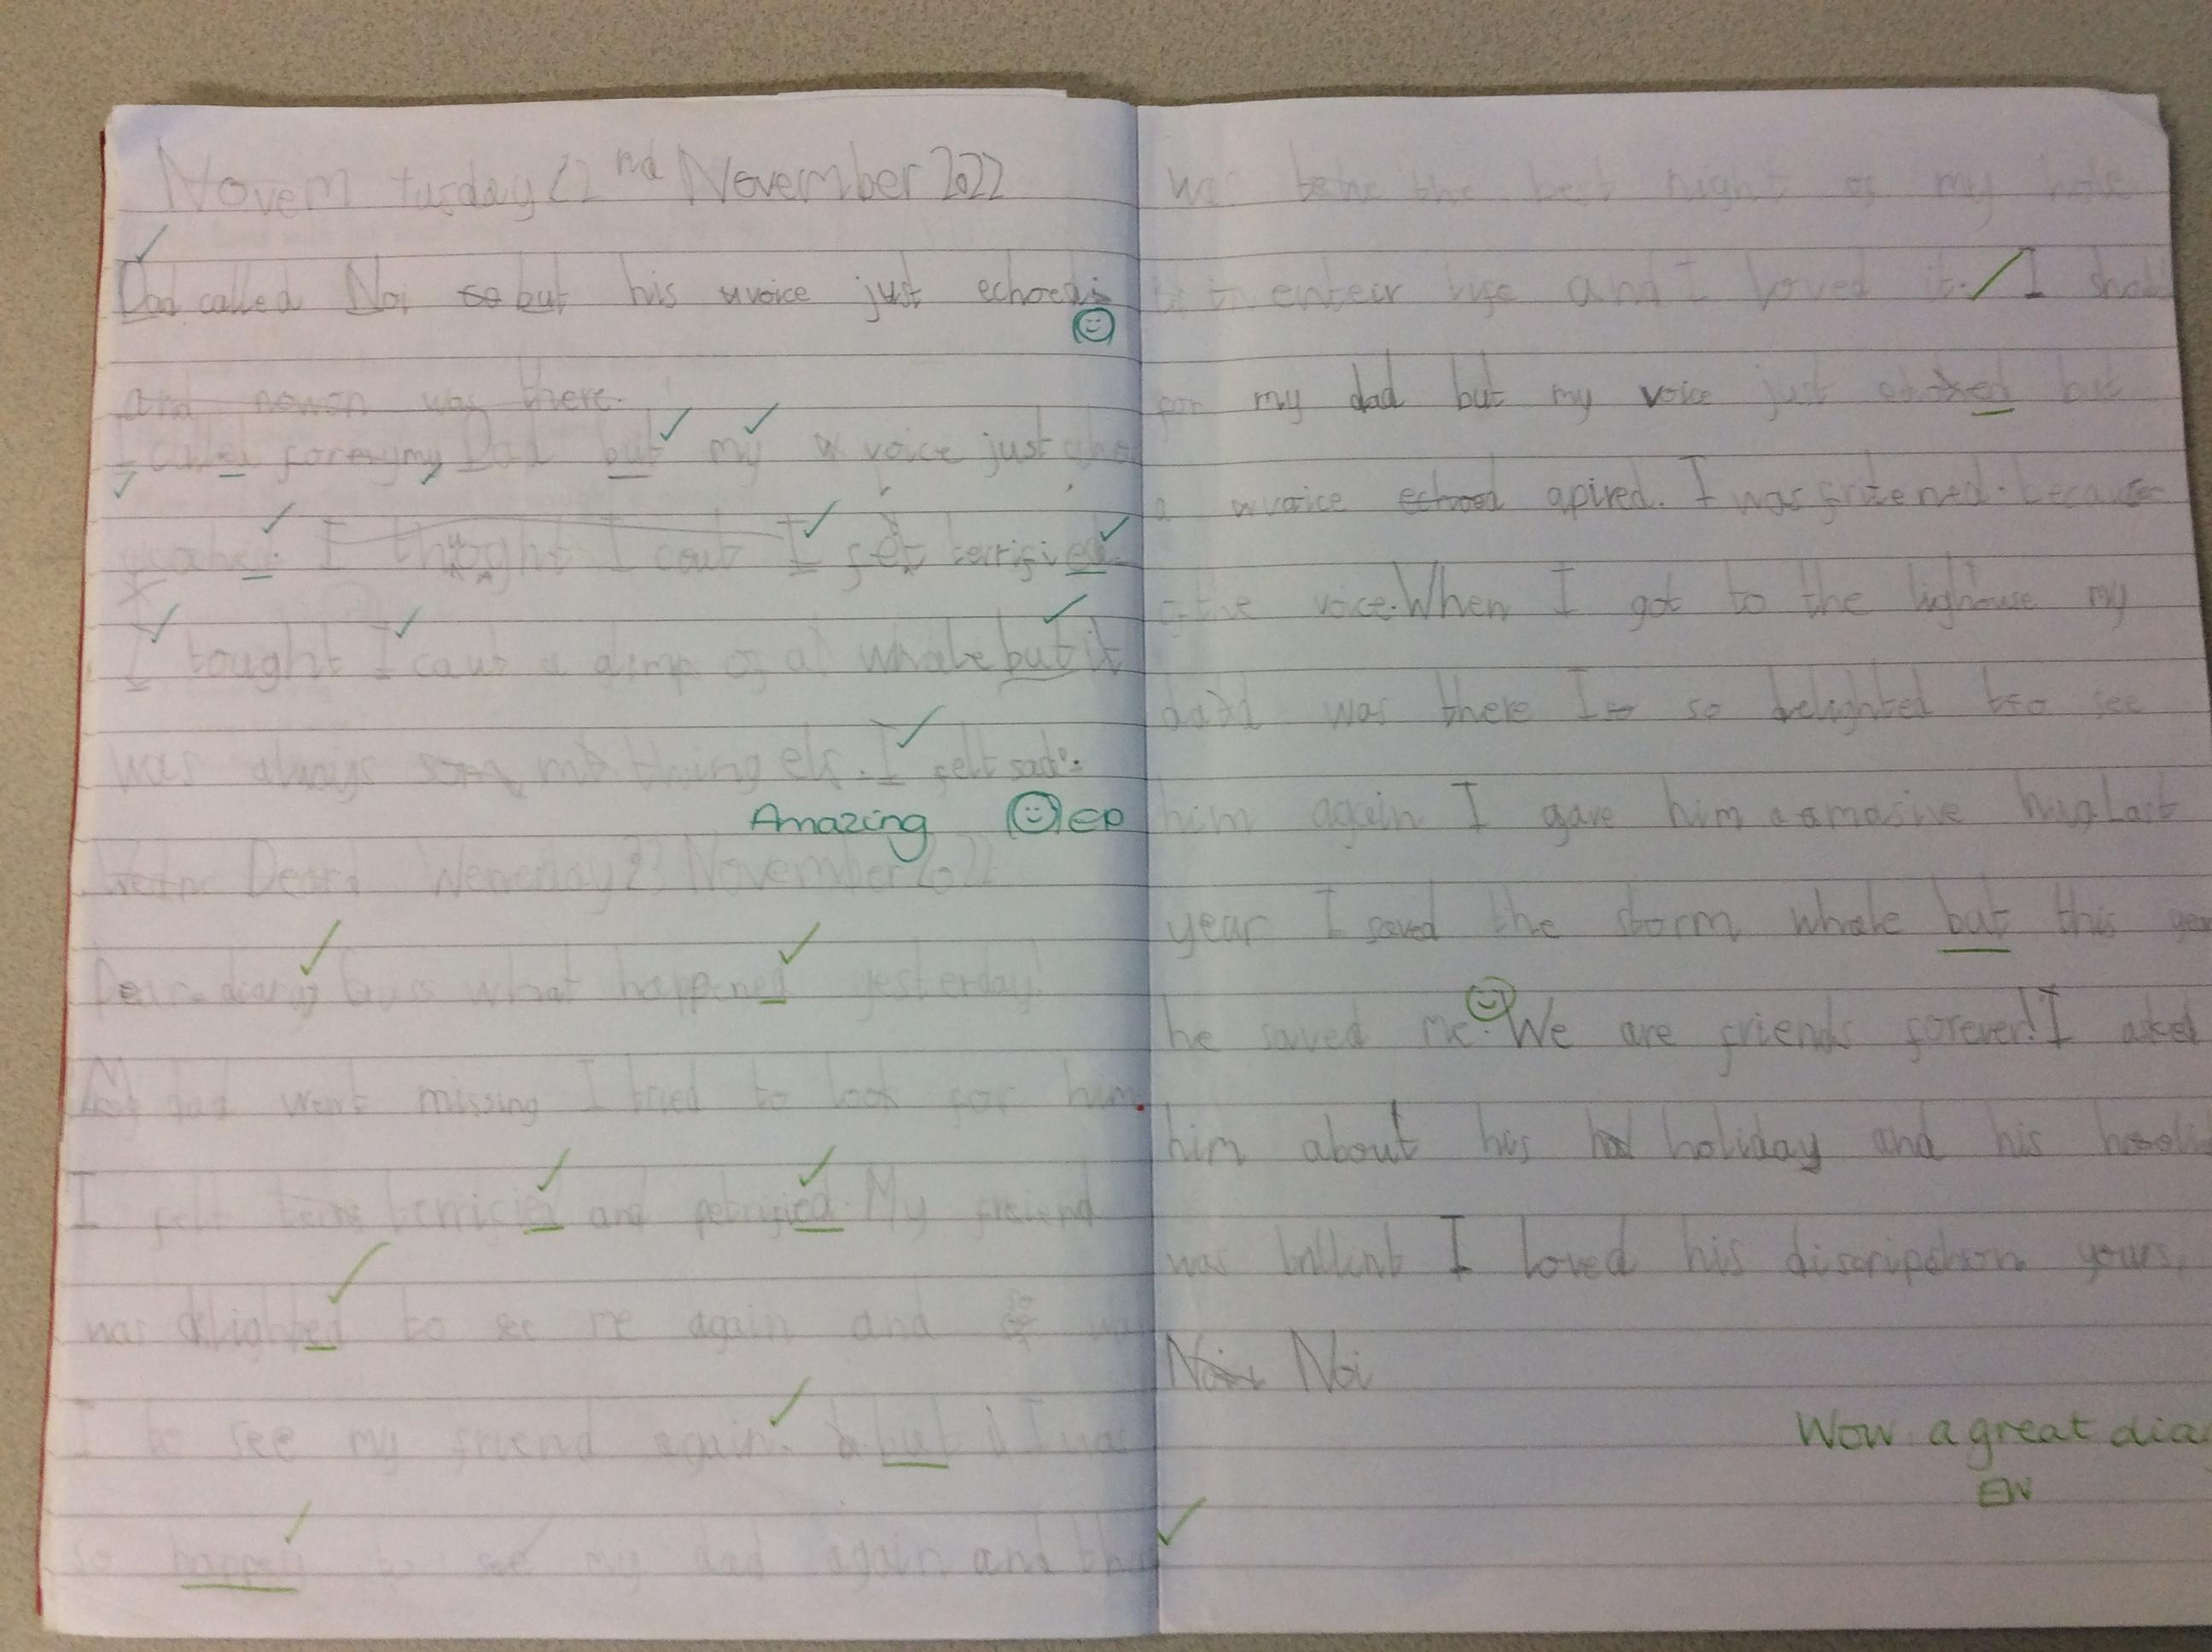 Novem tusday 22nd November 2022
Dad called Noi so but his voice just echoed
and nowon was there.
I called for my Dad but my voice just
I thoght I caut I felt terrified
I tought I caut a gimp of a whale but it
was always something els. I felt sad.
Amazing EP
Dear Wenesday 23 November 2022
Dear diary Gues what happened yesterday!
My dad went missing I tried to look for him.
I felt terrified and petrified. My freiend
was delighted to see me again and so was
I to see my friend again. but I was
so happey to see my dad again and that
was the best night of my hole
enteir life and I loved it. I
for my dad but my voice just but
a voice echoed apired. I was fritened. because
of the voice. When I got to the lighouse my
dad was there I so delighted to see
him again I gave him a masive hug. Last
year I saved the storm whale but this
he saved me. We are friends forever! I asked
him about his hol holiday and his
was I loved his yours,
Noi
Wow a great dia
EW